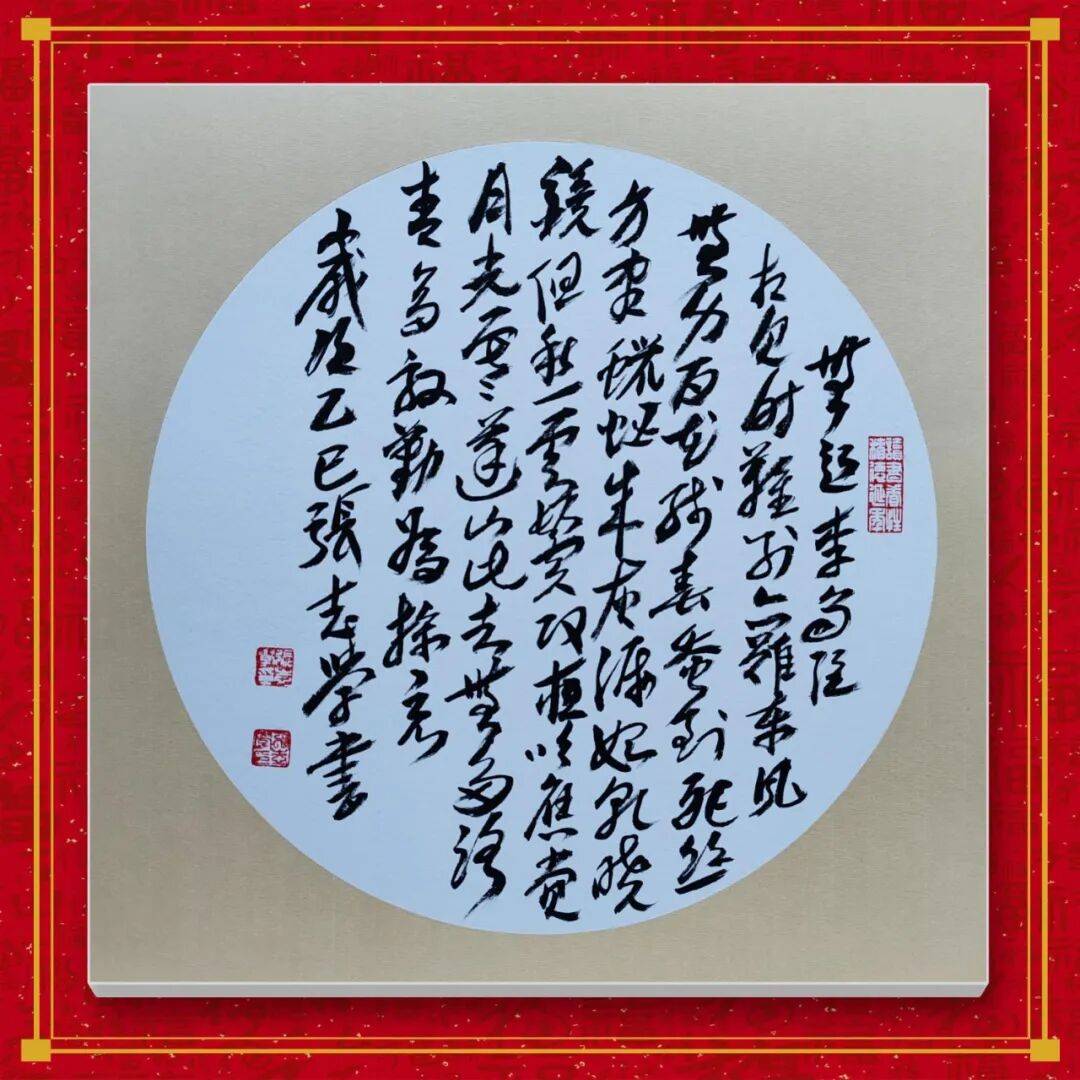 無題李商隱
讀書養性積德延年
相見時難別亦難東風
無力百花殘春蚕到死絲
方盡蠟炬成灰淚始乾曉
鏡但愁雲鬢改夜吟應覺
月光寒蓬山此去無多路
青鳥殷勤為探看
歲乙巳張志學書